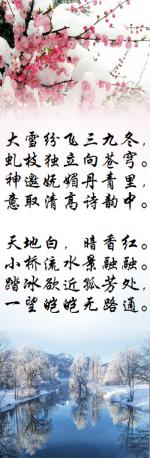 大雪纷飞三九冬，
虬枝独立向苍穹。
神邀妩媚丹青里，
意取清高诗韵中。
天地白，暗香红。
小桥流水景融融。
踏冰欲近孤芳处，
一望皑皑无路通。